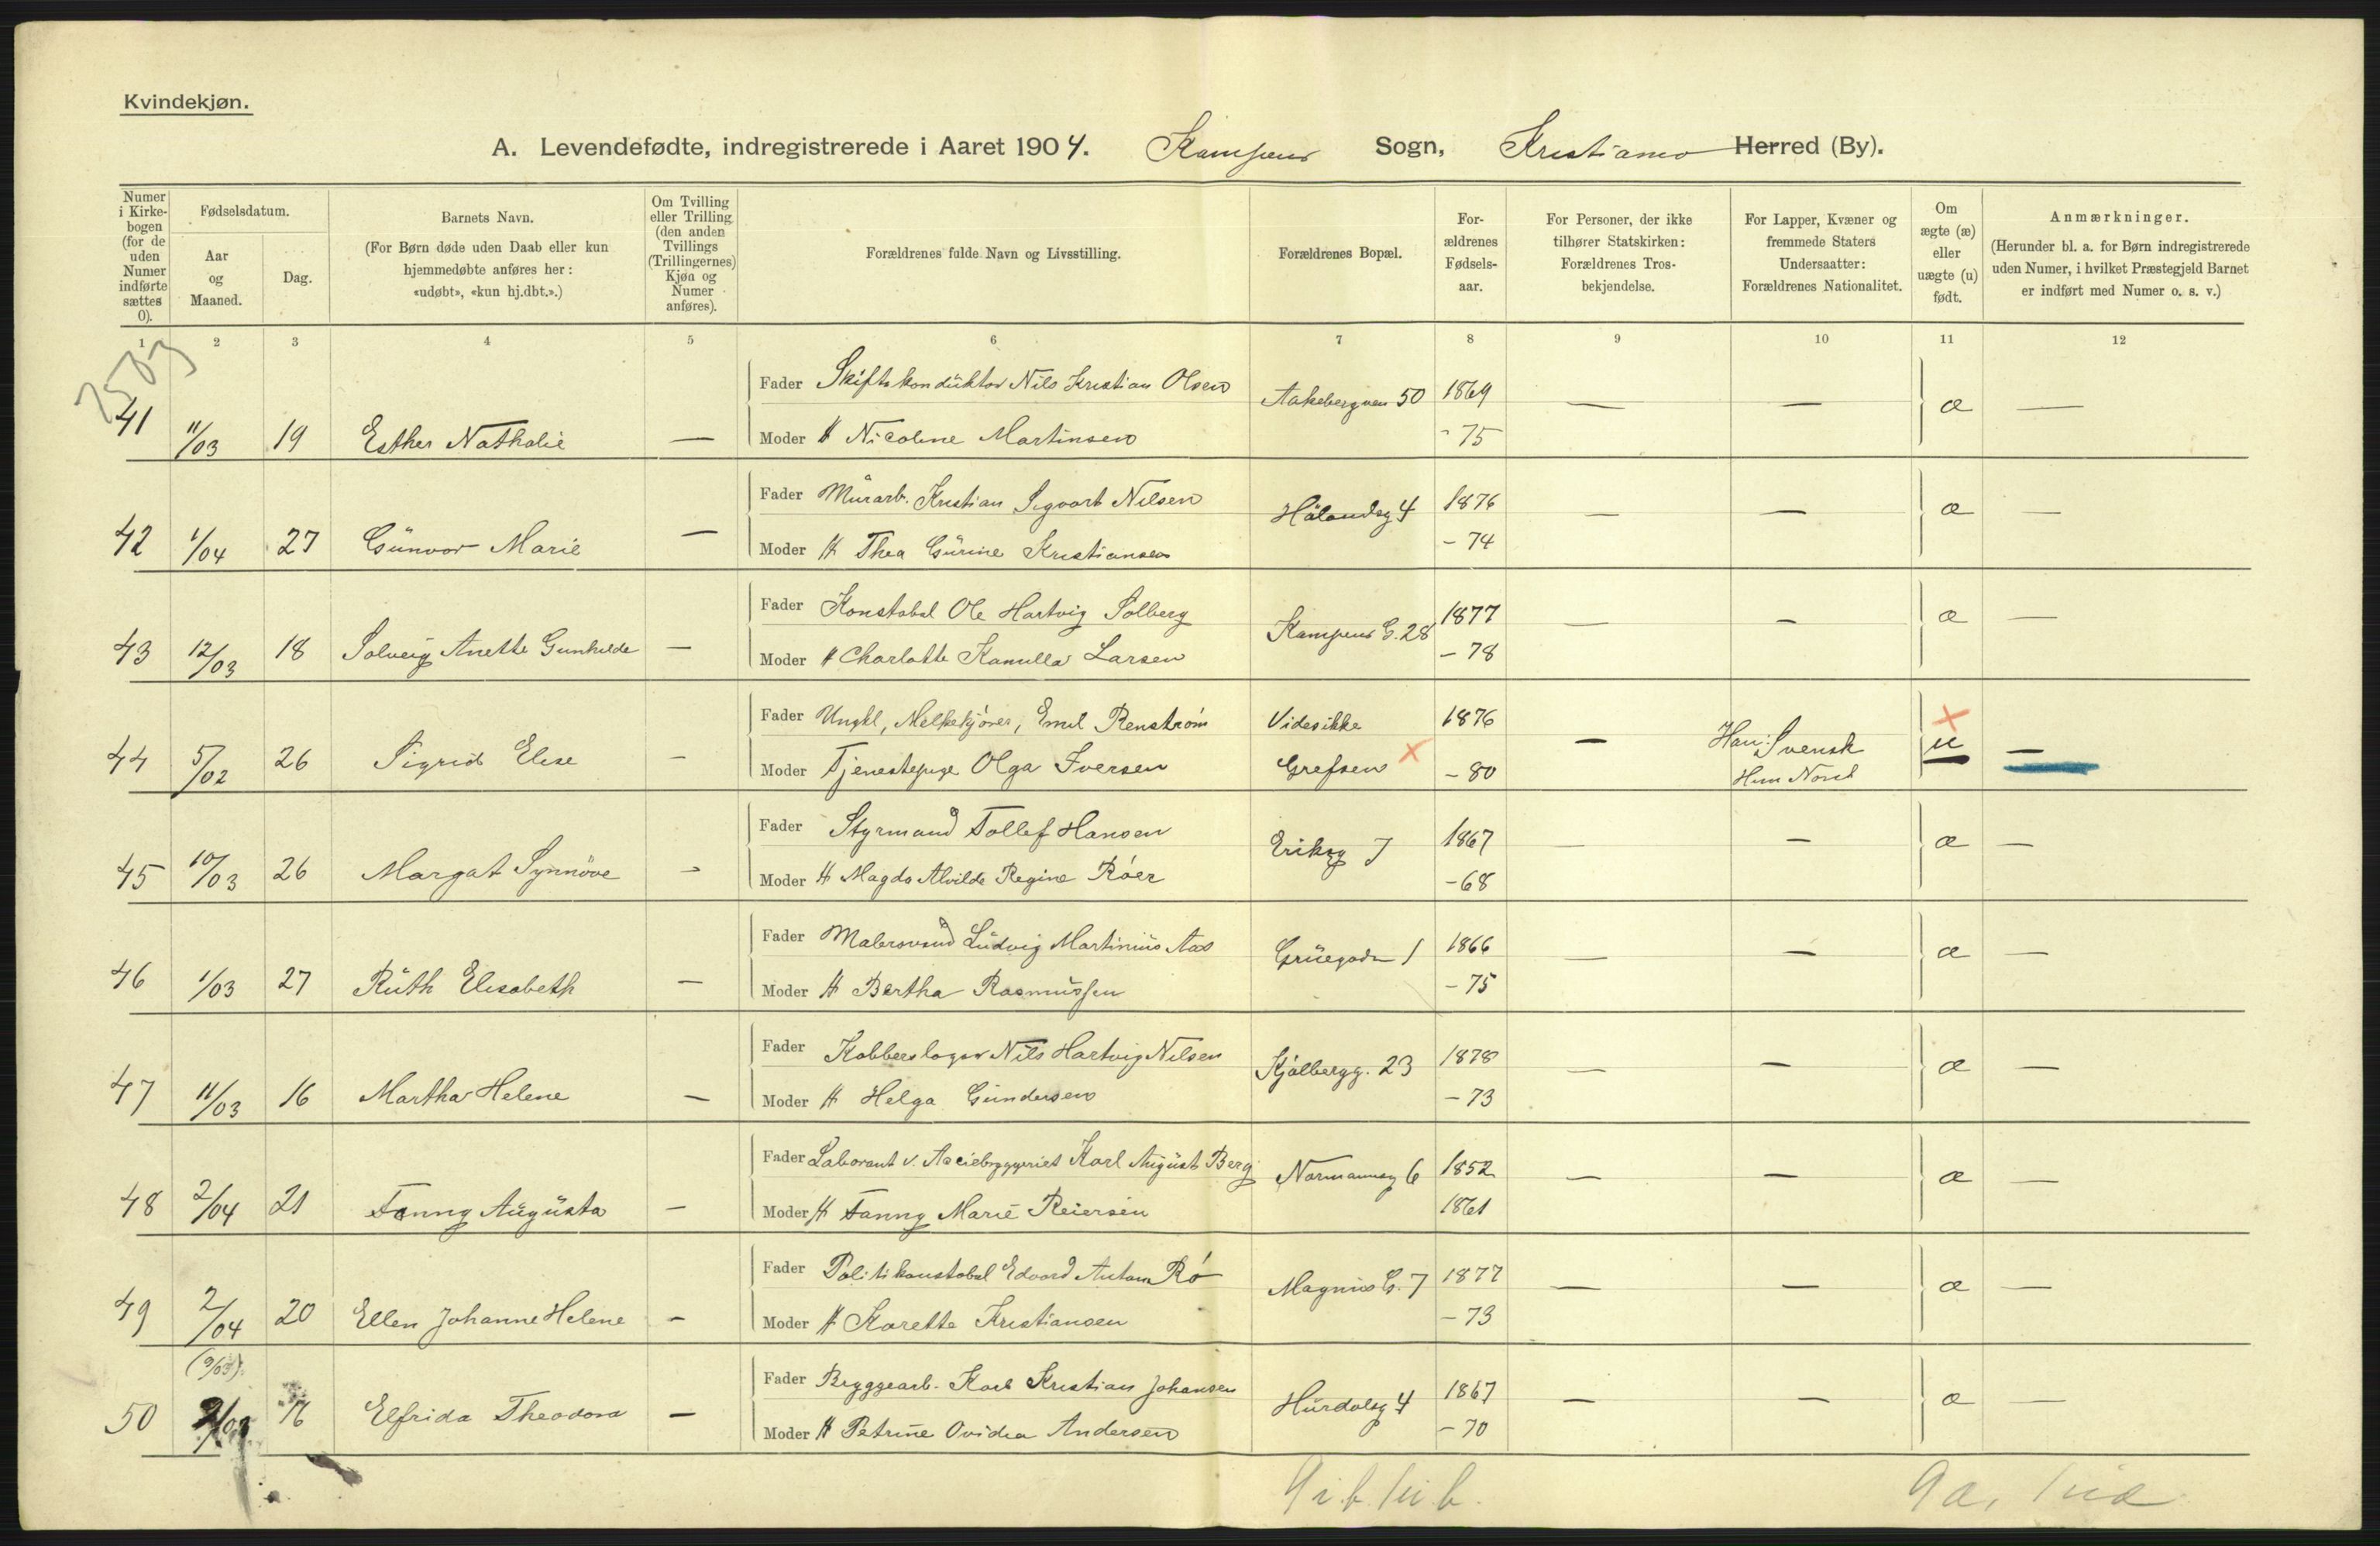 Kvindekjøn.
A. Levendefødte, indregistrerede i Aaret 1904. Kampens Sogn, Kristiania Herred (By).
Numer i Kirkebogen (for de uden Numer indførte sættes 0).
Fødselsdatum.
Aar og Maaned.
Dag.
Barnets Navn.
(For Børn døde uden Daab eller kun hjemmedøbte anføres her: «udøbt», «kun hj.dbt.».)
Om Tvilling eller Trilling (den anden Tvillings (Trillingernes) Kjøn og Numer anføres).
Forældrenes fulde Navn og Livsstilling.
Forældrenes Bopæl.
Forældrenes Fødselsaar.
For Personer, der ikke tilhører Statskirken: Forældrenes Trosbekjendelse.
For Lapper, Kvæner og fremmede Staters Undersaatter: Forældrenes Nationalitet.
Om ægte (æ) eller uægte (u) født.
Anmærkninger.
(Herunder bl. a. for Børn indregistrerede uden Numer, i hvilket Præstegjeld Barnet er indført med Numer o. s. v.)
1 2 3 4 5 6 7 8 9 10 11 12
Fader Skiftekonduktør Nils Kristian Olsen Aakebergveien 50 1869 — — æ —
41 11/03 19 Esther Nathalie — Moder H Nicoline Martinsen - 75
Fader Murarb. Kristian Sigvart Nilsen Hølandsg 4 1876 — — æ —
42 1/04 27 Gunvor Marie — Moder H Thea Gurine Kristiansen - 74
Fader Konstabel Ole Hartvig Solberg Kampens G. 28 1877 — — æ —
43 12/03 18 Solveig Anette Gunhilde — Moder H Charlotte Kamilla Larsen - 78
Fader Ungkl, Melkekjører, Emil Renstrøm Vides ikke 1876 — Han: Svensk u —
44 5/02 26 Sigrid Elise — Moder Tjenestepige Olga Iversen Grefsen - 80 Hun Norsk
Fader Styrmand Tollef Hansen Eriksg 7 1867 — — æ —
45 10/03 26 Margat Synnöve — Moder H Magda Alvilde Regine Röer - 68
Fader Malersvend Ludvig Martinius Aas Gruegaden 1 1866 — — æ —
46 1/03 27 Ruth Elisabeth — Moder H Bertha Rasmussen - 75
Fader Kobberslager Nils Hartvig Nilsen Kjølbergg. 23 1878 — — æ —
47 11/03 16 Martha Helene — Moder H Helga Gundersen - 73
Fader Laborant v. Aktiebryggeriet Karl August Berg Normannsg 6 1852 — — æ —
48 2/04 21 Fanny Augusta — Moder H Fanny Marie Reiersen 1861
Fader Politikonstabel Edvard Anton Rø Magnus G. 7 1877 — — æ —
49 2/04 20 Ellen Johanne Helene — Moder H Karette Kristiansen - 73
(9/03)
Fader Bryggearb. Karl Kristian Johansen Hurdalsg 4 1867 — — æ —
50 16 Elfrida Theodora — Moder H Petrine Ovidia Andersen - 70